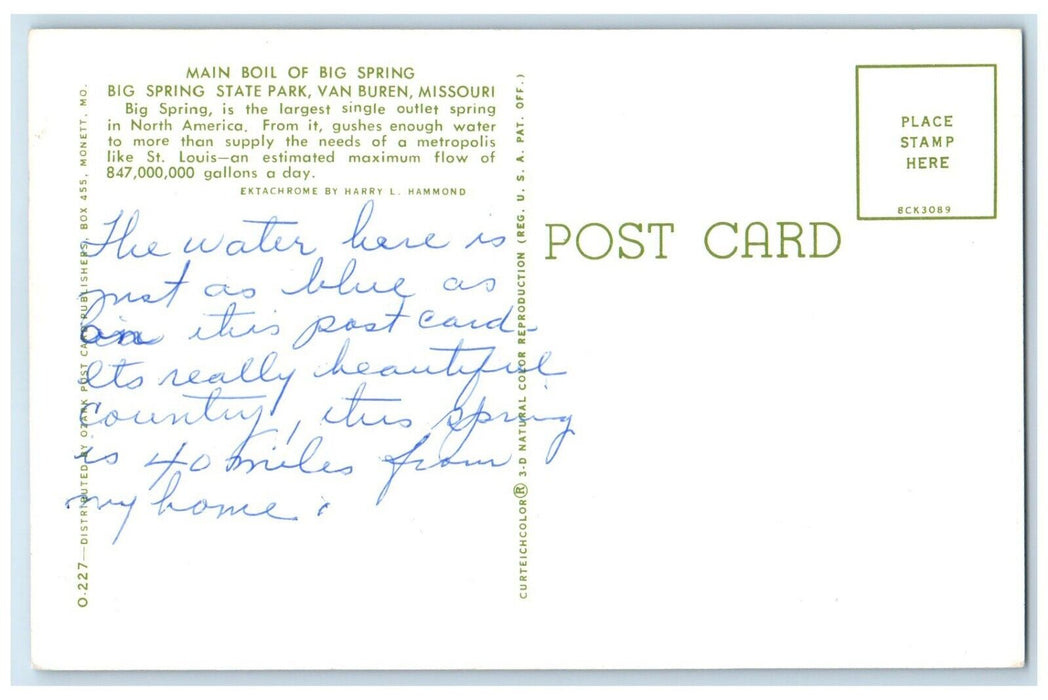 MAIN BOIL OF BIG SPRING
BIG SPRING STATE PARK, VAN BUREN, MISSOURI
Big Spring, is the largest single outlet spring
in North America. From it, gushes enough water
to more than supply the needs of a metropolis
like St. Louis—an estimated maximum flow of
847,000,000 gallons a day.
EKTACHROME BY HARRY L. HAMMOND
The water here is
just as blue as
on this post card.
Its really beautiful
country, this spring
is 40 miles from
my home.
O-227—DISTRIBUTED BY OZARK POST CARD PUBLISHERS, BOX 455, MONETT, MO.
CURTEICHCOLOR® 3-D NATURAL COLOR REPRODUCTION (REG. U. S. A. PAT. OFF.)
POST CARD
PLACE
STAMP
HERE
8CK3089